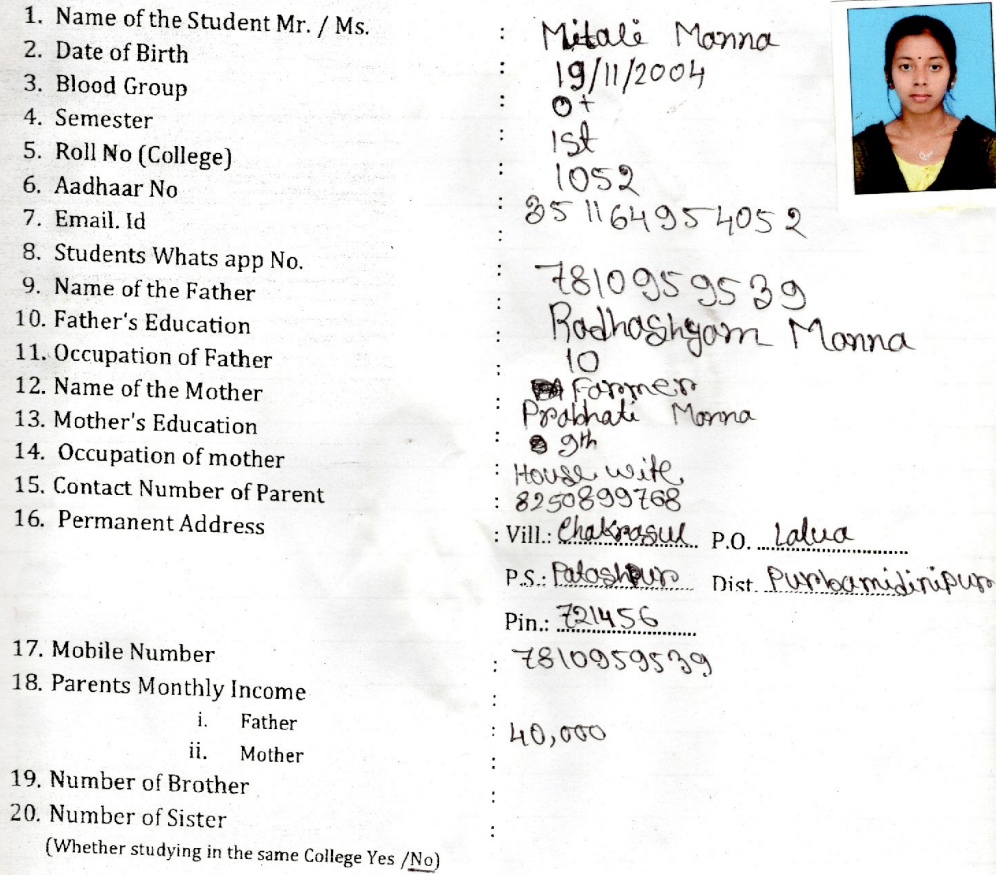 1. Name of the Student Mr. / Ms. : Mitali Manna
2. Date of Birth : 19/11/2004
3. Blood Group : O+
4. Semester : 1st
5. Roll No (College) : 1052
6. Aadhaar No : 351164954052
7. Email. Id :
8. Students Whats app No. : 7810959539
9. Name of the Father : Radhashyam Manna
10. Father's Education : 10
11. Occupation of Father : Farmer
12. Name of the Mother : Prabhati Manna
13. Mother's Education : 9th
14. Occupation of mother : House wife
15. Contact Number of Parent : 8250899768
16. Permanent Address : Vill.: Chakrasul P.O. Lalua
P.S.: Patashpur Dist. Purbamidinipur
Pin.: 721456
17. Mobile Number : 7810959539
18. Parents Monthly Income :
i. Father : 40,000
ii. Mother :
19. Number of Brother :
20. Number of Sister :
(Whether studying in the same College Yes /No)